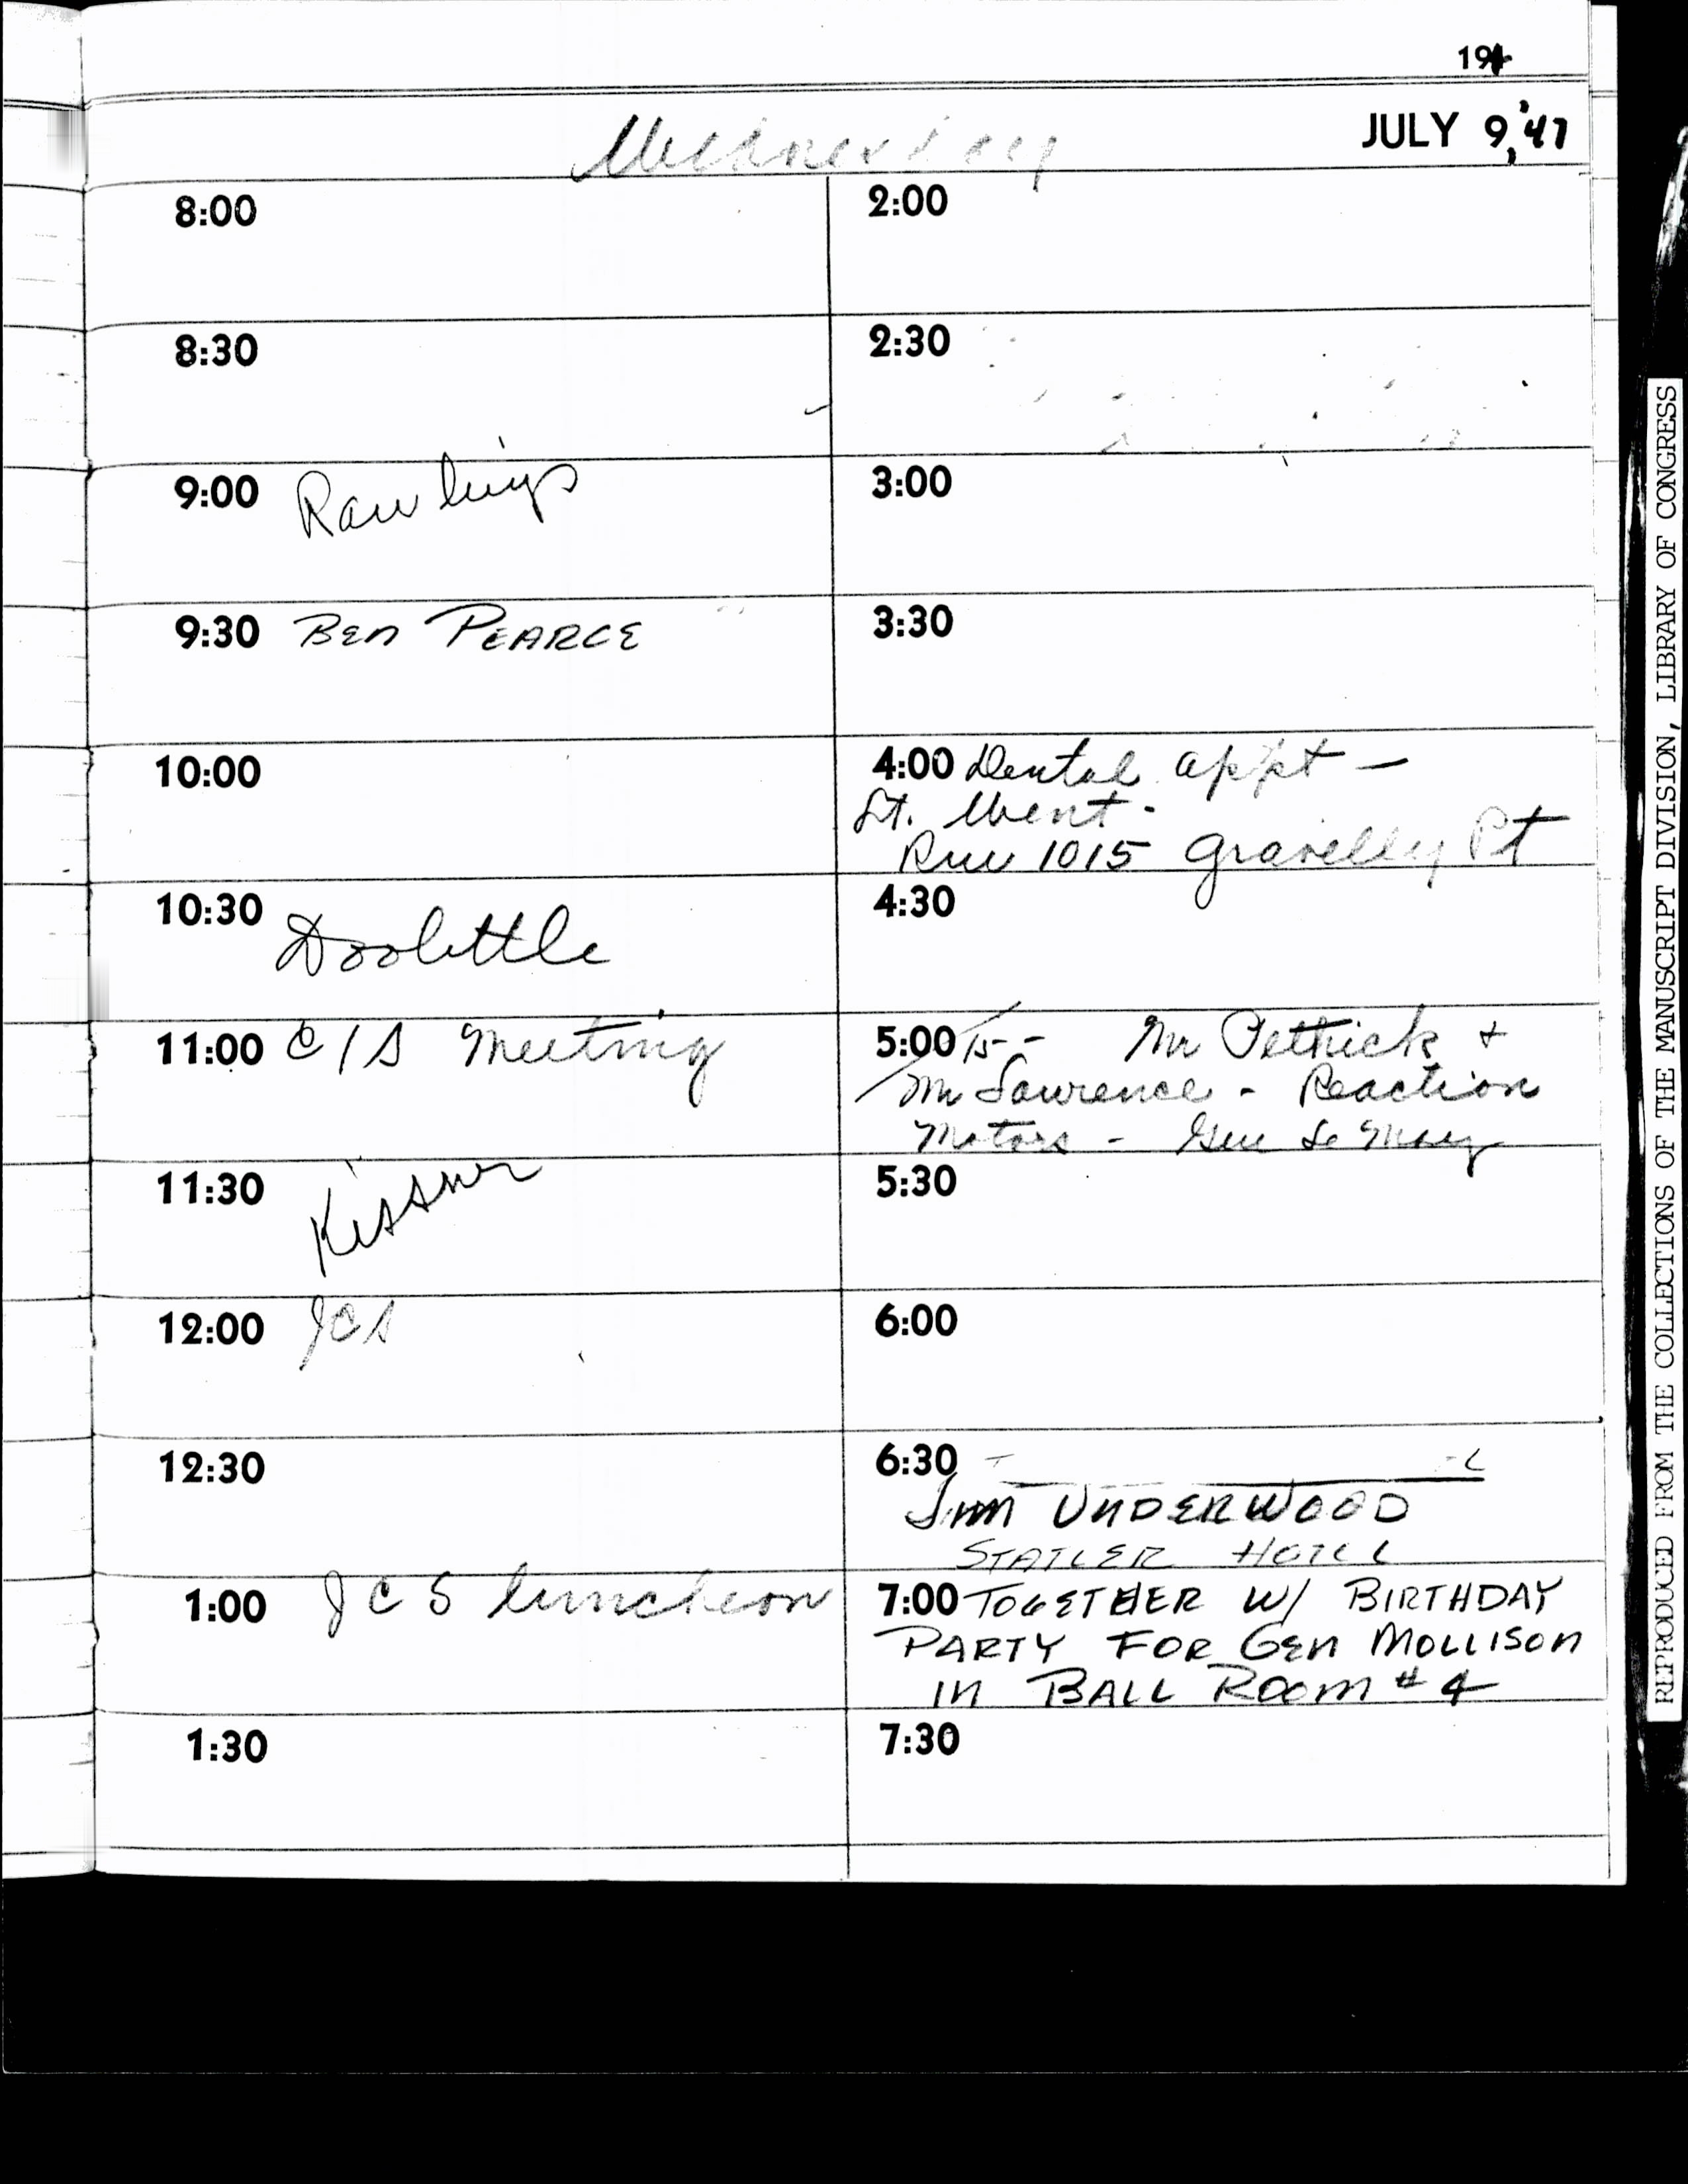 194
JULY 9, '47
Wednesday
8:00
8:30
9:00 Rawlings
9:30 BEN PEARCE
10:00
10:30 Doolittle
11:00 C/S Meeting
11:30 Kissner
12:00 JCS
12:30
1:00 JCS luncheon
1:30
2:00
2:30
3:00
3:30
4:00 Dental appt —
Lt. Went -
Rm 1015 Gravelly Pt
4:30
5:00/15 - Mr Pethick +
Mr Lawrence - Reaction
Motors - Gen Le May
5:30
6:00
6:30
JIM UNDERWOOD
STATLER HOTEL
7:00 TOGETHER W/ BIRTHDAY
PARTY FOR GEN MOLLISON
IN BALL ROOM #4
7:30
REPRODUCED FROM THE COLLECTIONS OF THE MANUSCRIPT DIVISION, LIBRARY OF CONGRESS